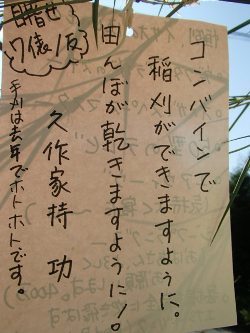 コンバインで
稲刈ができますように。
田んぼが乾きますように!。
久作家持功
手刈は去年でホトホトです。
目指せ
7俵/反